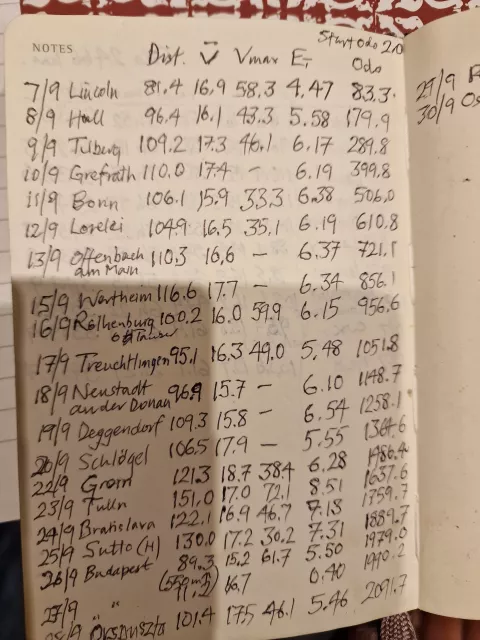 NOTES
Dist. v̄ Vmax ET Start Odo 2.0
Odo
7/9 Lincoln 81.4 16,9 58.3 4.47 83.3
8/9 Hull 96.4 16,1 43.3 5.58 179.9
9/9 Tilberg 109.2 17.3 46,1 6.17 289.8
10/9 Grefrath 110.0 17.4 - 6.19 399.8
11/9 Bonn 106.1 15.9 33.3 6.38 506.0
12/9 Lorelei 104.9 16.5 35,1 6.19 610.8
13/9 Offenbach 110.3 16,6 - 6.37 721.1
am Main
15/9 Wertheim 116.6 17.7 - 6.34 856.1
16/9 Rothenburg 100.2 16.0 59.9 6.15 956.6
17/9 Treuchtlingen 95.1 16.3 49.0 5.48 1051.8
18/9 Neustadt 96.9 15.7 - 6.10 1148.7
an der Donau
19/9 Deggendorf 109.3 15.8 - 6.54 1258.1
20/9 Schlögel 106.5 17.9 - 5.55 1364.6
22/9 Grein 121.3 18.7 38.4 6.28
23/9 Tulln 151.0 17.0 72.1 8.51 1637.6
24/9 Bratislava 122.1 16.9 46.7 7.13 1759.7
25/9 Sutto (H) 130.0 17.2 30.2 7.31 1889.7
26/9 Budapest 89.3 15.2 61.7 5.50 1979.0
27/9 " " 11.2 16.7 0.40 1990.2
101.4 17.5 46.1 5.46 2091.7
29/9
30/9